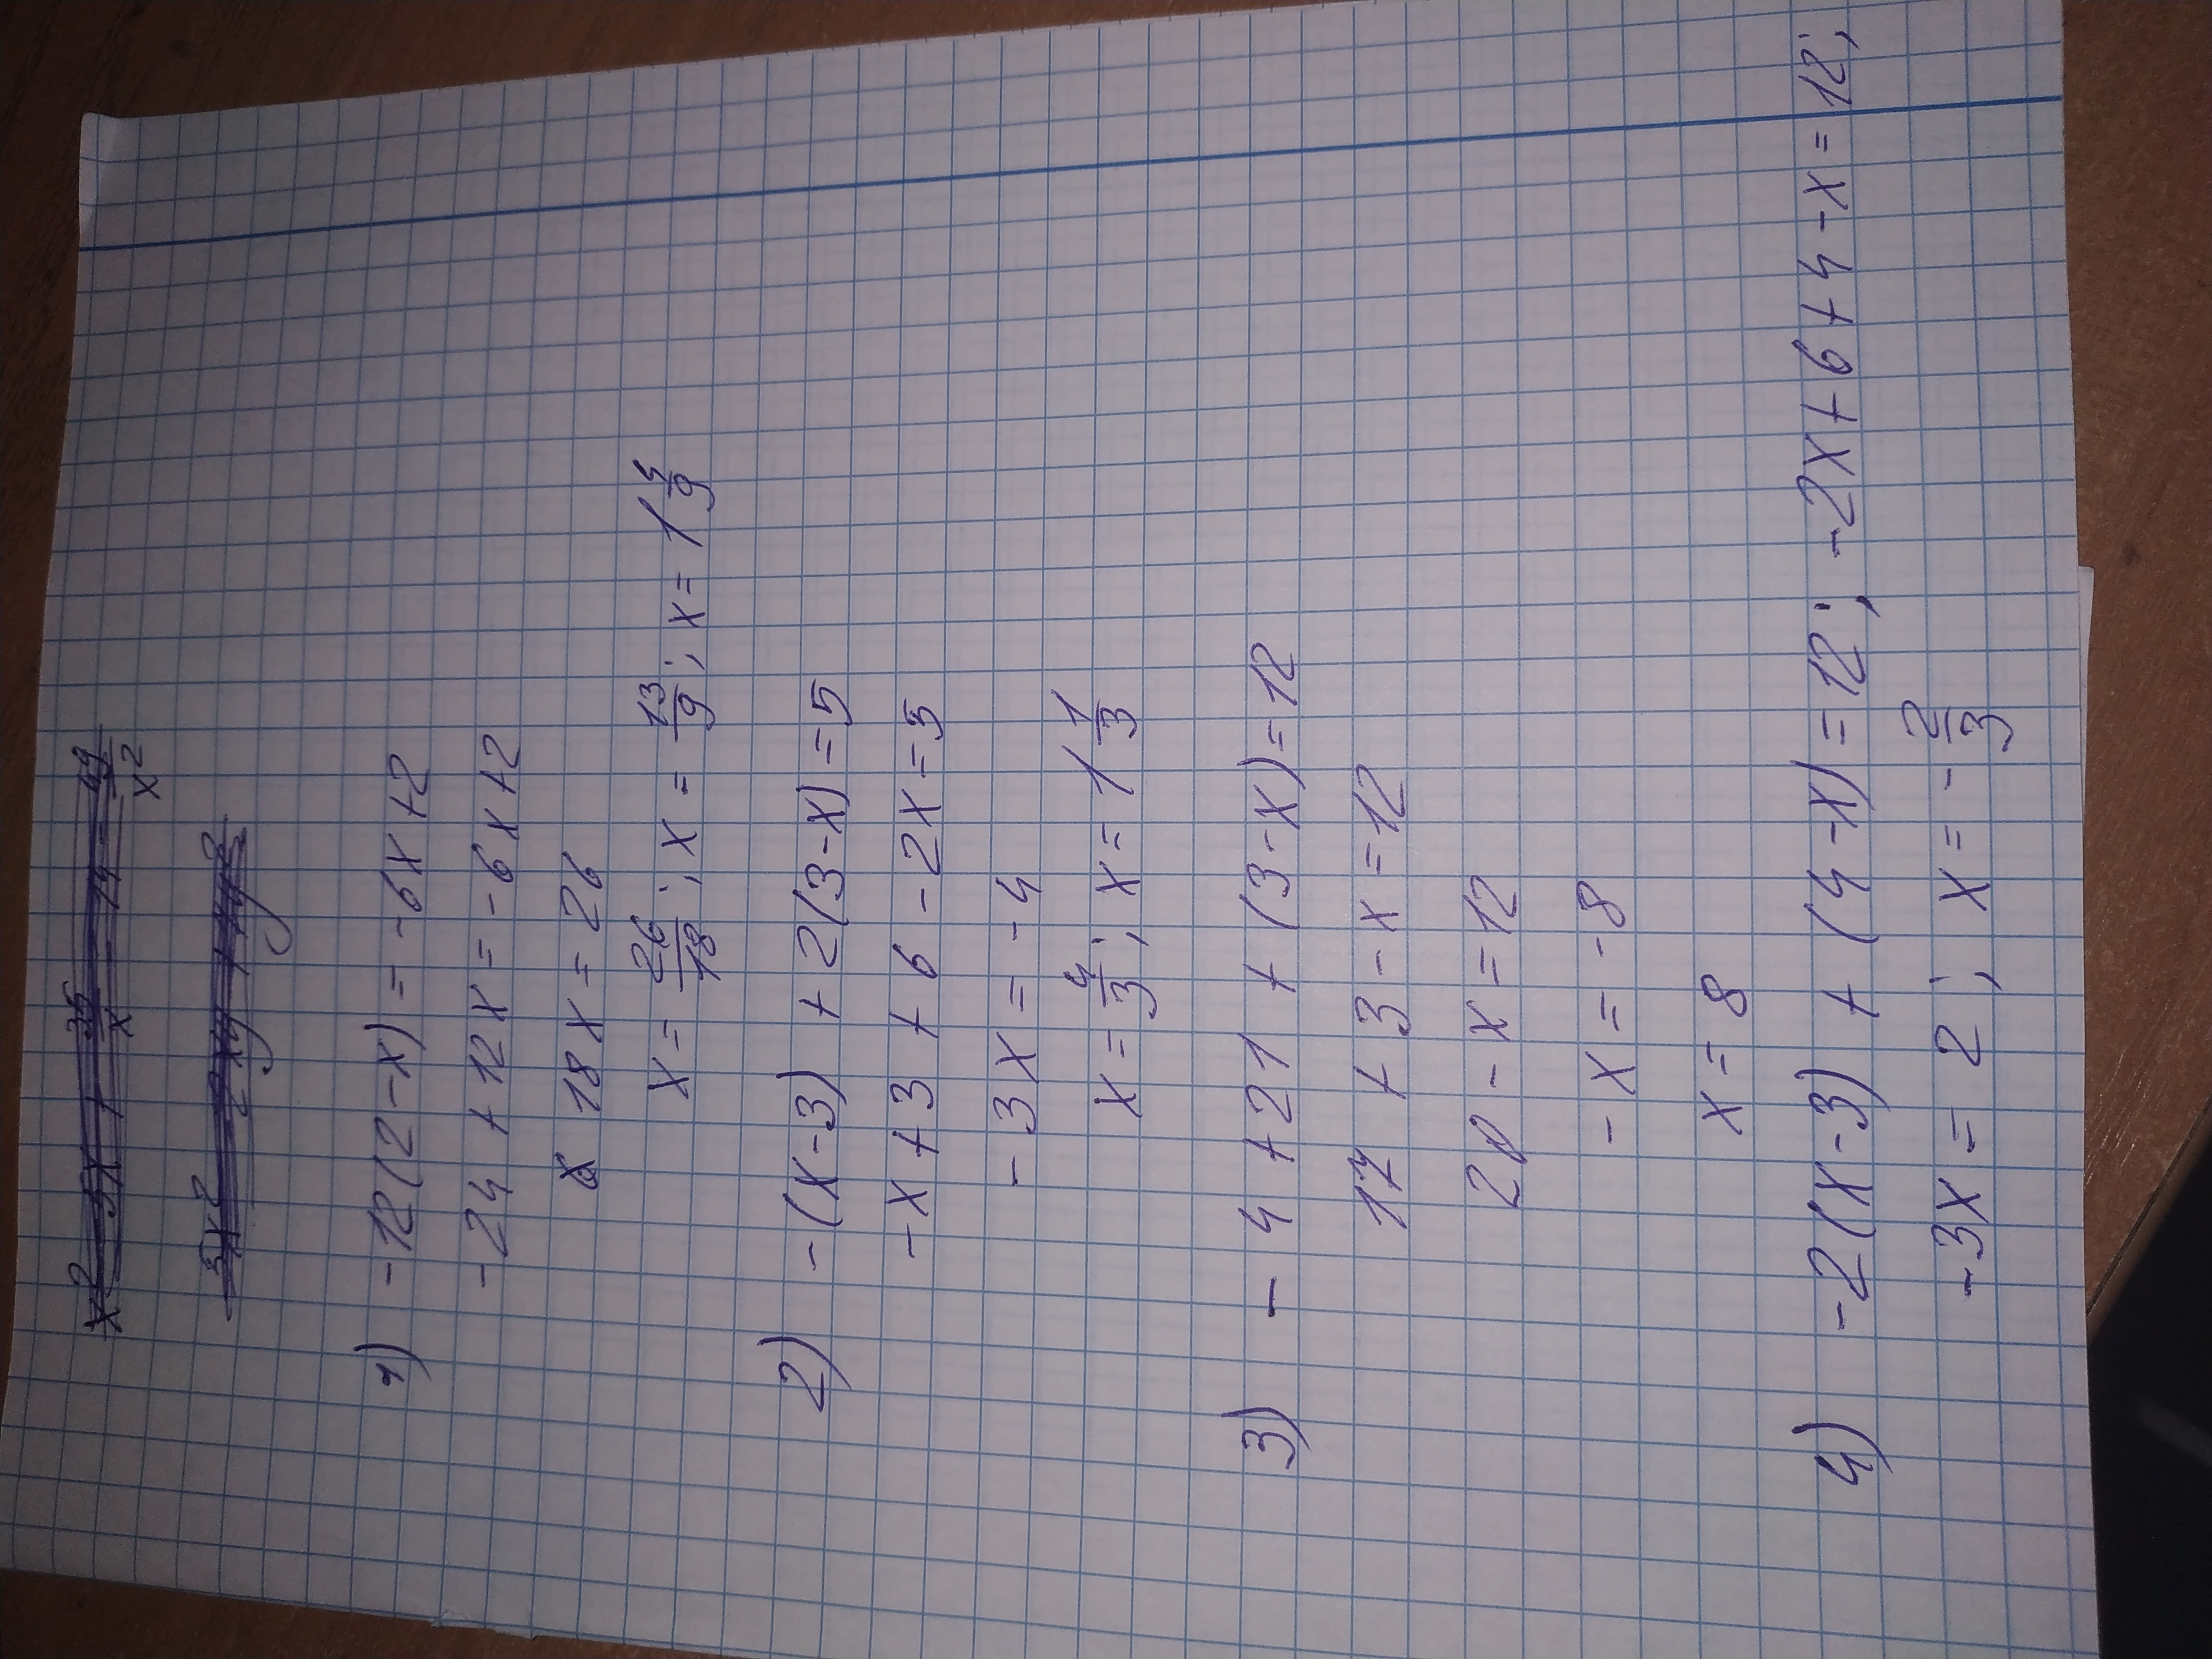 1) -12(2-x) = -6x+2
-24 + 12x = -6x+2
18x = 26
x = 26/18; x = 13/9; x = 1 4/9
2) -(x-3) + 2(3-x)=5
-x+3 + 6 -2x=5
-3x = -4
x = 4/3; x = 1 1/3
3) - 4 +21 + (3-x)=12
17 + 3 -x=12
20 - x = 12
-x = -8
x = 8
4) -2(x-3) + (4-x) =12; -2x+6+4-x=12;
-3x = 2; x = -2/3